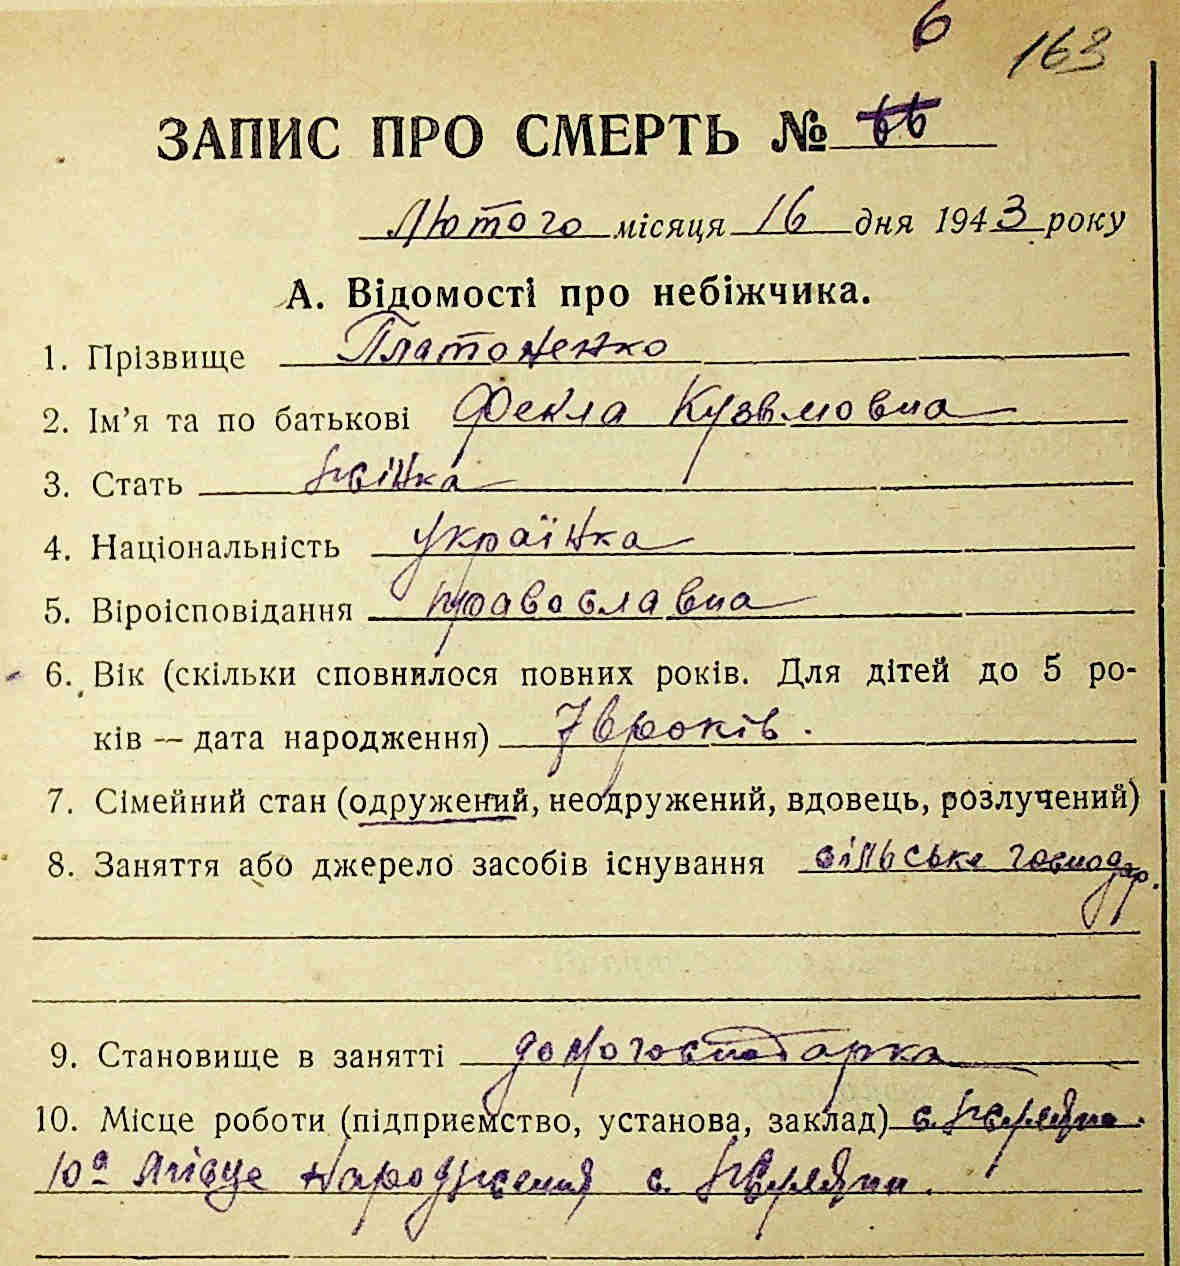 6 163
ЗАПИС ПРО СМЕРТЬ №
Лютого місяця 16 дня 1943 року
А. Відомості про небіжчика.
1. Прізвище Платоненко
2. Ім'я та по батькові Фекла Кузьмовна
3. Стать жінка
4. Національність українка
5. Віроісповідання православна
6. Вік (скільки сповнилося повних років. Для дітей до 5 ро-
ків — дата народження) років.
7. Сімейний стан (одружений, неодружений, вдовець, розлучений)
8. Заняття або джерело засобів існування сільське господар.
9. Становище в занятті домогосподарка
10. Місце роботи (підприємство, установа, заклад) с.
10а Місце народження с.